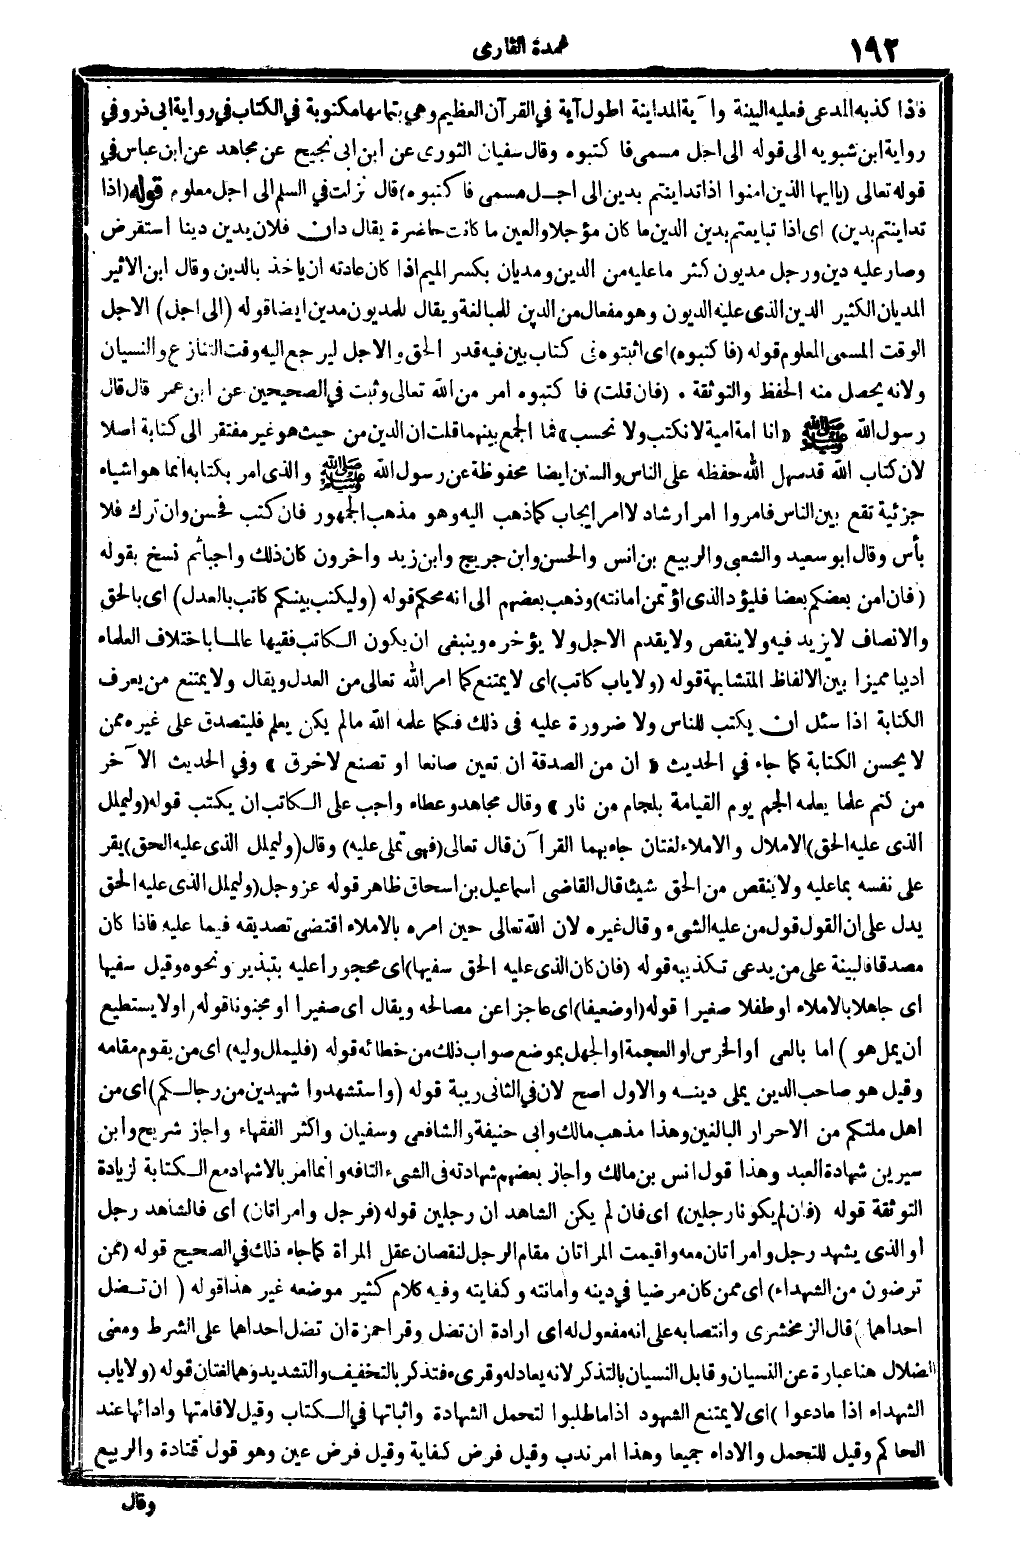 ١٩٢
عمدة القارى
فاذا كذبه المدعى فعليه البينة وآية المداينة اطول آية في القرآن العظيم وهي بتمامها مكتوبة في الكتاب في رواية ابى ذر وفي
رواية ابن شبويه الى قوله الى اجل مسمى فاكتبوه وقال سفيان الثورى عن ابن ابى نجيح عن مجاهد عن ابن عباس في
قوله تعالى (يا ايها الذين امنوا اذا تداينتم بدين الى اجل مسمى فاكتبوه) قال نزلت في السلم الى اجل معلوم قوله (اذا
تداينتم بدين) اى اذا تبايعتم بدين الدين ما كان مؤجلا والعين ما كانت حاضرة يقال دان فلان يدين دينا استقرض
وصار عليه دين ورجل مديون كثر ما عليه من الدين ومديان بكسر الميم اذا كان عادته ان ياخذ بالدين وقال ابن الاثير
المديان الكثير الدين الذى عليه الديون وهو مفعال من الدين للمبالغة ويقال للمديون مدين ايضا قوله (الى اجل) الاجل
الوقت المسمى المعلوم قوله (فاكتبوه) اى اثبتوه فى كتاب بين فيه قدر الحق والاجل ليرجع اليه وقت التنازع والنسيان
ولانه يحصل منه الحفظ والتوثقة . (فان قلت) فاكتبوه امر من الله تعالى وثبت في الصحيحين عن ابن عمر قال قال
رسول الله ﷺ «انا امة امية لا نكتب ولا نحسب» فما الجمع بينهما قلت ان الدين من حيث هو غير مفتقر الى كتابة اصلا
لان كتاب الله قد سهل الله حفظه على الناس والسنن ايضا محفوظة عن رسول الله ﷺ والذى امر بكتابه انما هو اشياء
جزئية تقع بين الناس فامروا امر ارشاد لا امر ايجاب كما ذهب اليه وهو مذهب الجمهور فان كتب فحسن وان ترك فلا
بأس وقال ابو سعيد والشعبى والربيع بن انس والحسن وابن جريج وابن زيد واخرون كان ذلك واجبا ثم نسخ بقوله
(فان امن بعضكم بعضا فليؤد الذى اؤتمن امانته) وذهب بعضهم الى انه محكم قوله (وليكتب بينكم كاتب بالعدل) اى بالحق
والانصاف لا يزيد فيه ولا ينقص ولا يقدم الاجل ولا يؤخره وينبغى ان يكون الكاتب فقيها عالما باختلاف العلماء
اديبا مميزا بين الالفاظ المتشابهة قوله (ولا ياب كاتب) اى لا يمتنع كما امر الله تعالى من العدل ويقال ولا يمتنع من يعرف
الكتابة اذا سئل ان يكتب للناس ولا ضرورة عليه فى ذلك فكما علمه الله ما لم يكن يعلم فليتصدق على غيره ممن
لا يحسن الكتابة كما جاء في الحديث «ان من الصدقة ان تعين صانعا او تصنع لاخرق» وفي الحديث الآخر
من كتم علما يعلمه الجم يوم القيامة بلجام من نار» وقال مجاهد وعطاء واجب على الكاتب ان يكتب قوله (وليملل
الذى عليه الحق) الاملال والاملاء لغتان جاء بهما القرآن قال تعالى (فهى تملى عليه) وقال (وليملل الذى عليه الحق) يقر
على نفسه بما عليه ولا ينقص من الحق شيئا قال القاضى اسماعيل بن اسحاق ظاهر قوله عز وجل (وليملل الذى عليه الحق
يدل على ان القول قول من عليه الشىء وقال غيره لان الله تعالى حين امره بالاملاء اقتضى تصديقه فيما عليه فاذا كان
مصدقا فالبينة على من يدعى تكذيبه قوله (فان كان الذى عليه الحق سفيها) اى محجورا عليه بتبذير ونحوه وقيل سفيها
اى جاهلا بالاملاء او طفلا صغيرا قوله (او ضعيفا) اى عاجزا عن مصالحه ويقال اى صغيرا او مجنونا قوله (او لا يستطيع
ان يمل هو) اما بالعى او الخرس او العجمة او الجهل بموضع صواب ذلك من خطائه قوله (فليملل وليه) اى من يقوم مقامه
وقيل هو صاحب الدين يملى دينه والاول اصح لان في الثانى ريبة قوله (واستشهدوا شهيدين من رجالكم) اى من
اهل ملتكم من الاحرار البالغين وهذا مذهب مالك وابى حنيفة والشافعى وسفيان واكثر الفقهاء واجاز شريح وابن
سيرين شهادة العبد وهذا قول انس بن مالك واجاز بعضهم شهادته فى الشىء التافه وانما امر بالاشهاد مع الكتابة لزيادة
التوثقة قوله (فان لم يكونا رجلين) اى فان لم يكن الشاهد ان رجلين قوله (فرجل وامراتان) اى فالشاهد رجل
او الذى يشهد رجل وامراتان معه واقيمت المراتان مقام الرجل لنقصان عقل المرأة كما جاء ذلك في الصحيح قوله (ممن
ترضون من الشهداء) اى ممن كان مرضيا في دينه وامانته وكفايته وفيه كلام كثير موضعه غير هذا قوله (ان تضل
احداهما) قال الزمخشرى وانتصابه على انه مفعول له اى ارادة ان تضل وقرا حمزة ان تضل احداهما على الشرط ومعنى
الضلال هنا عبارة عن النسيان وقابل النسيان بالتذكر لانه يعادله وقرىء فتذكر بالتخفيف والتشديد وهما لغتان قوله (ولا ياب
الشهداء اذا ما دعوا) اى لا يمتنع الشهود اذا ما طلبوا لتحمل الشهادة واثباتها في الكتاب وقيل لاقامتها وادائها عند
الحاكم وقيل للتحمل والاداء جميعا وهذا امر ندب وقيل فرض كفاية وقيل فرض عين وهو قول قتادة والربيع
وقال